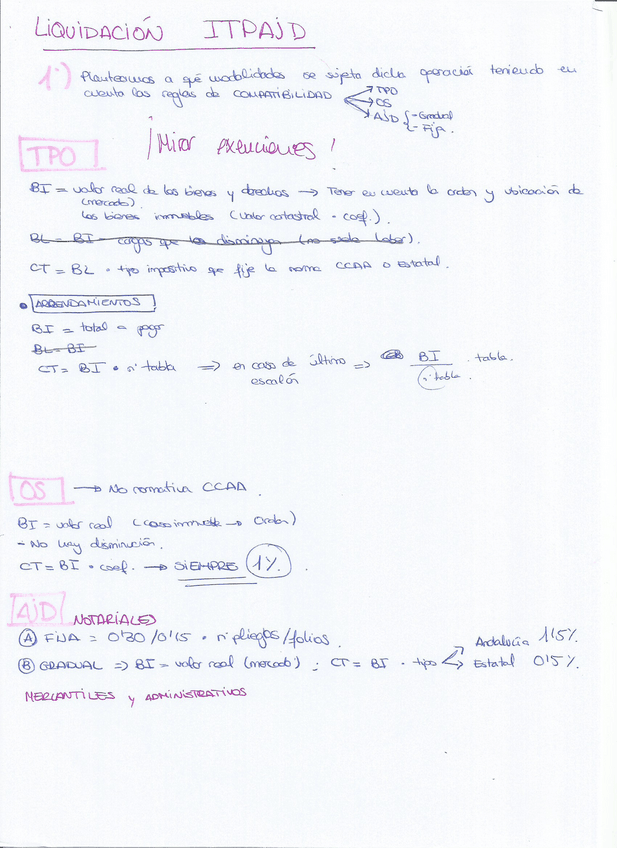 LIQUIDACIÓN ITPAJD
1º) Planteamos a qué modalidades se sujeta dicha operación teniendo en
cuenta las reglas de COMPATIBILIDAD → TPO
→ OS
→ AJD { - Gradual
- Fija.
TPO
¡Mirar exenciones!
BI = valor real de los bienes y derechos → Tener en cuenta la orden y ubicación de
(mercado)
los bienes inmuebles (valor catastral · coef.).
BL = BI - cargas que los disminuya (no suele haber).
CT = BL · tipo impositivo que fije la norma CCAA o Estatal.
• ARRENDAMIENTOS
BI = total a pagar
BL = BI
CT = BI · nº tabla ⇒ en caso de último ⇒ BI · tabla.
escalón nº tabla
OS → No normativa CCAA.
BI = valor real (caso inmueble → Orden)
- No hay disminución.
CT = BI · coef. → SIEMPRE 1%.
AJD NOTARIALES
A FIJA = 0'30 / 0'15 · nº pliegos/folios.
Andalucía 1'5%.
B GRADUAL ⇒ BI = valor real (mercado) ; CT = BI · tipo Estatal 0'5%.
MERCANTILES y ADMINISTRATIVOS